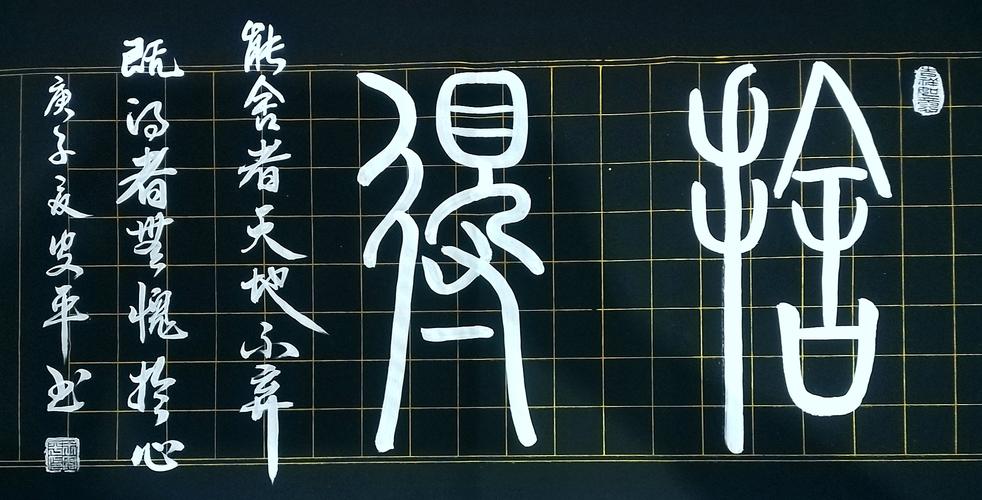 捨得
能舍者天地不弃
既得者無愧於心
庚子夏平书